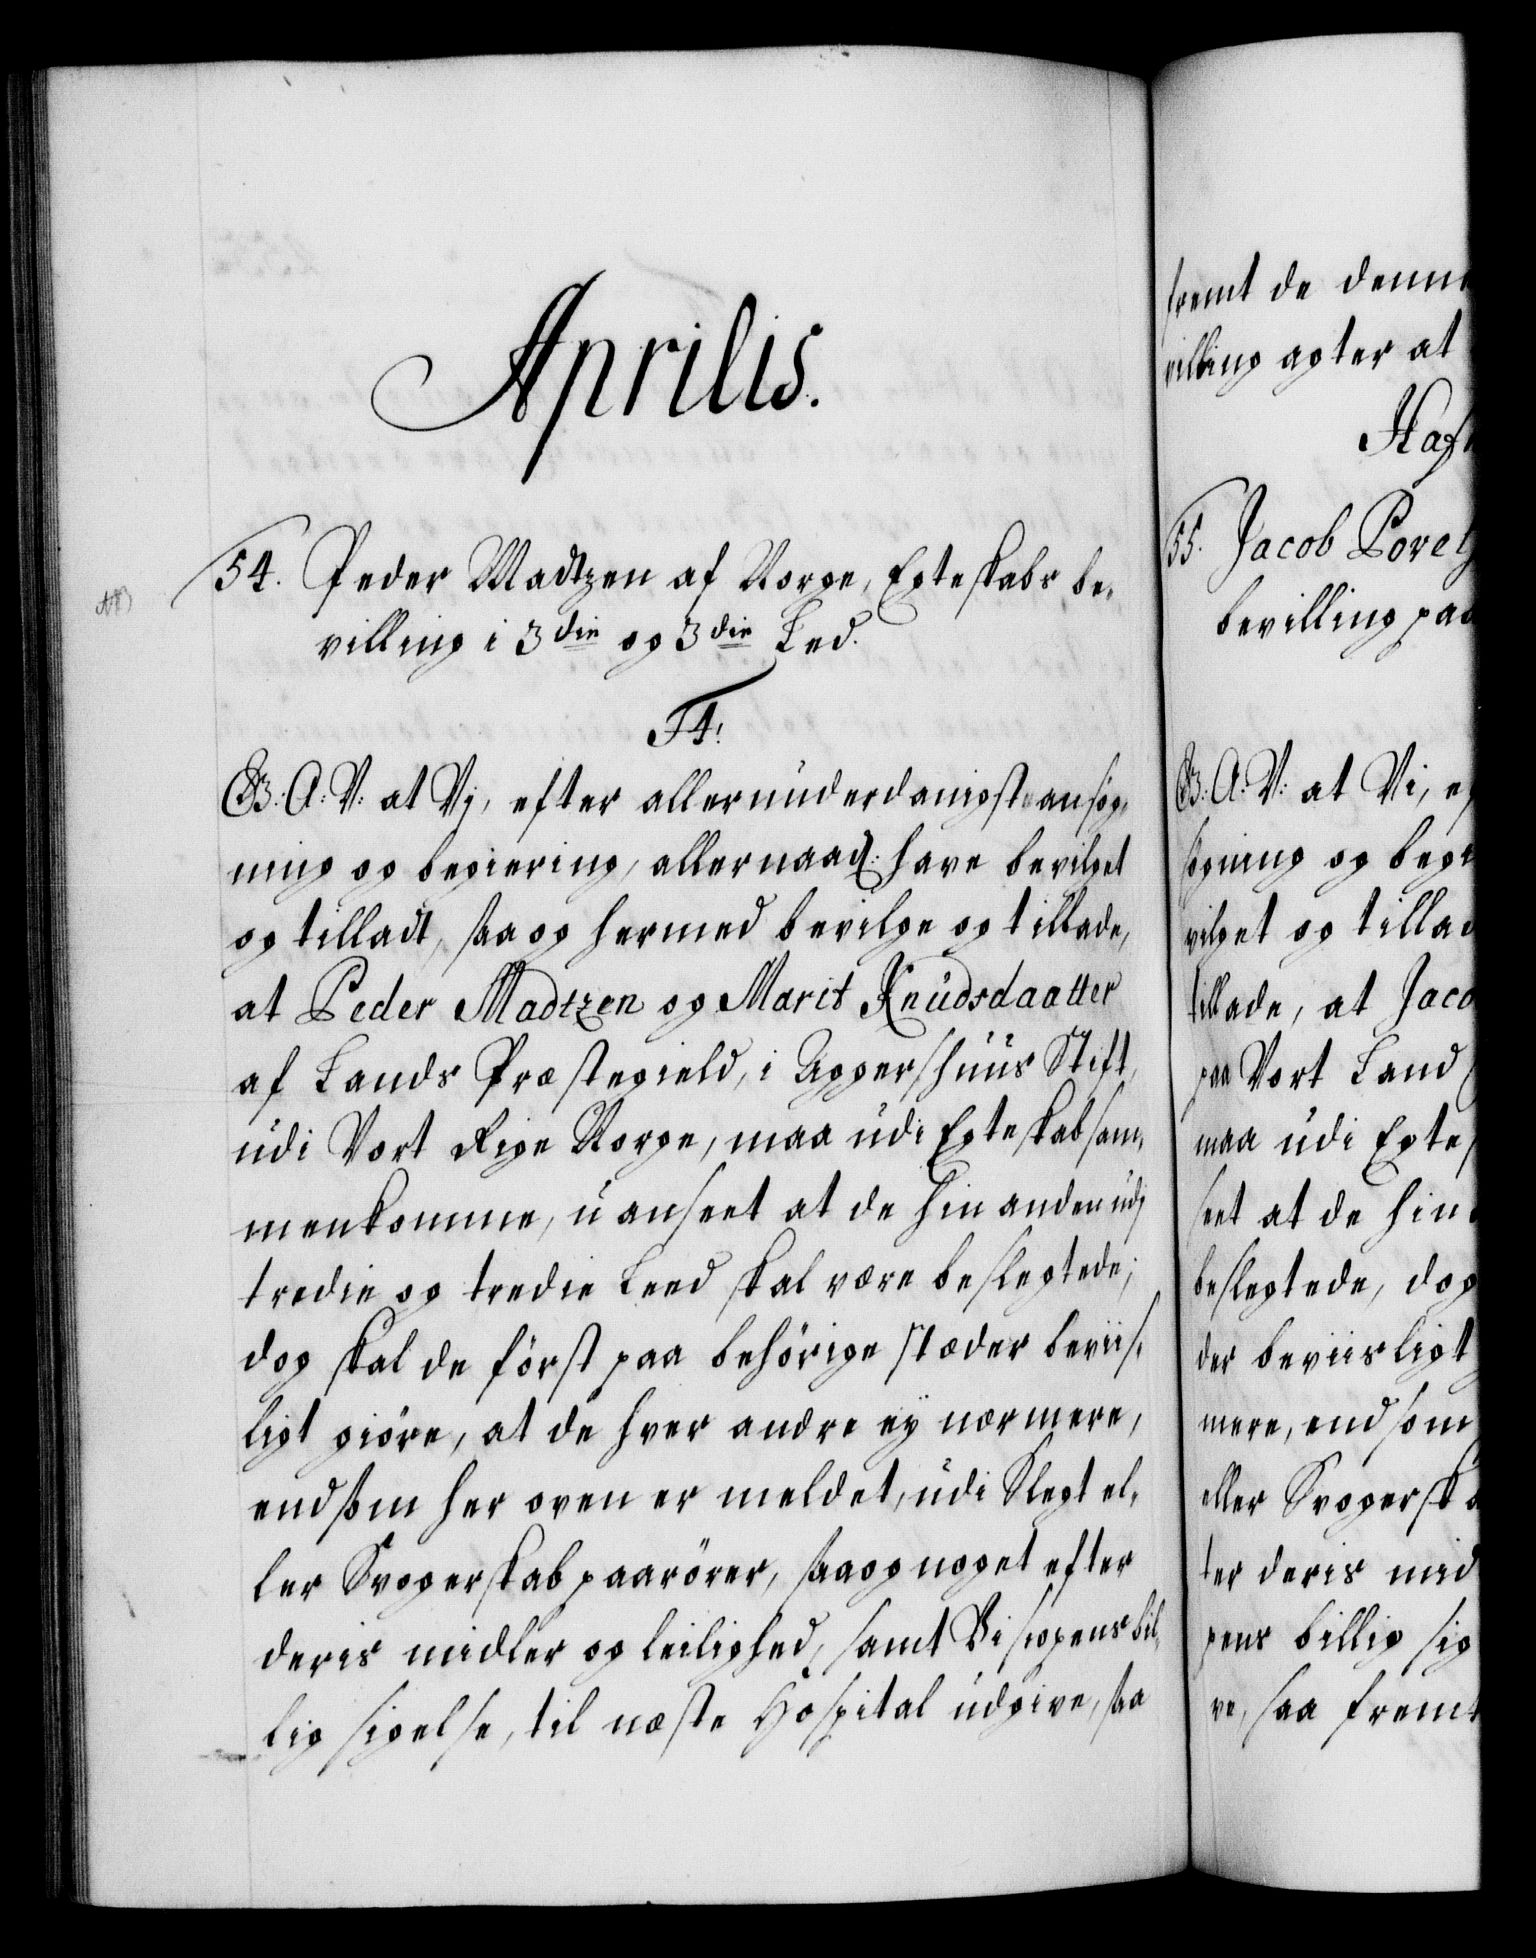 Aprilis.
54. Peder Madtzen af Norge, Egteskabs be,
villing i 3die og 3die Led.
F4!
G: A: V: at Vj, efter allerunderdanigst ansøg,
ning og begiering, allernaad: have bevilget
og tilladt, saa og hermed bevilge og tillade,
at Peder Madtzen og Marit Knudsdaatter
af Lands Præstegield, i Aggershuus Stift,
udi Vort Rige Norge, maa udi Egteskab sam,
menkomme, uanseet at de hinanden udj
tredie og tredie Leed skal være beslegtede;
dog skal de først paa behörige stæder beviis,
ligt giöre, at de hver andre ey nærmere,
end som her oven er meldet, udi Slegt el,
ler Svogerskab paarörer, saa og noget efter
deris midler og leilighed, samt Biscopens bil,
lig sigelse, til næste Hospital udgive, saa
fremt de denne
villing agter at
Haf
55. Jacob Povel
bevilling paa
G: A: V: at Vi, ef
søgning og begi
vilget og tillad
tillade, at Jaco
paa Vort Land
maa udi Egte
seet at de hin
beslegtede, dog
der beviisligt
mere, end som
eller Svogerska
ter deris mid
pens billig sig
ve, saa fremt